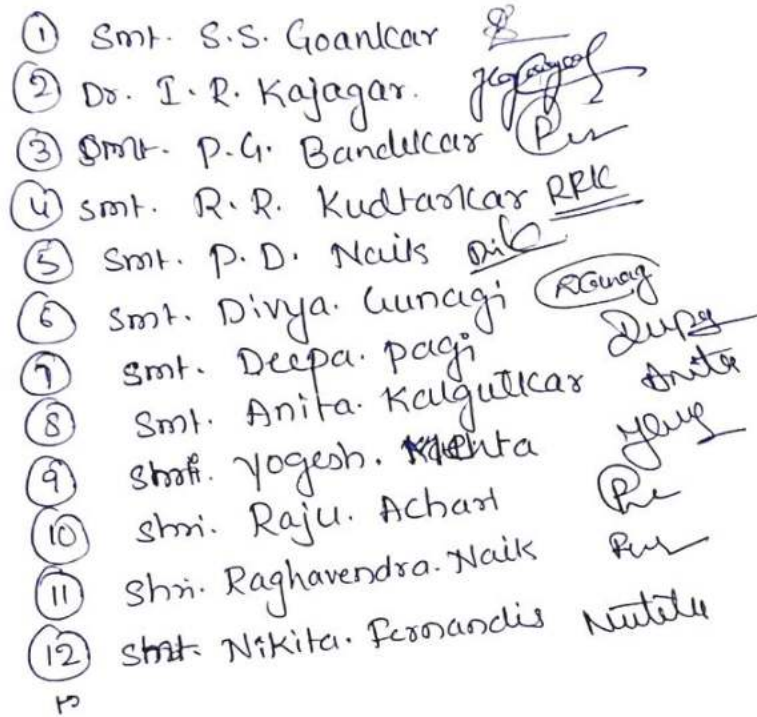 1 Smt. S.S. Goankar
2 Dr. I. R. Kajagar.
3 Smt. P.G. Bandekar
4 Smt. R. R. Kudtarkar RRK
5 Smt. P. D. Naik
6 Smt. Divya. Gunagi RGunag
7 Smt. Deepa. pagi Dupa
8 Smt. Anita. Kalgutkar Anita
9 Shri. Yogesh.
10 Shri. Raju. Achari
11 Shri. Raghavendra. Naik
12 Smt. Nikita. Fernandis